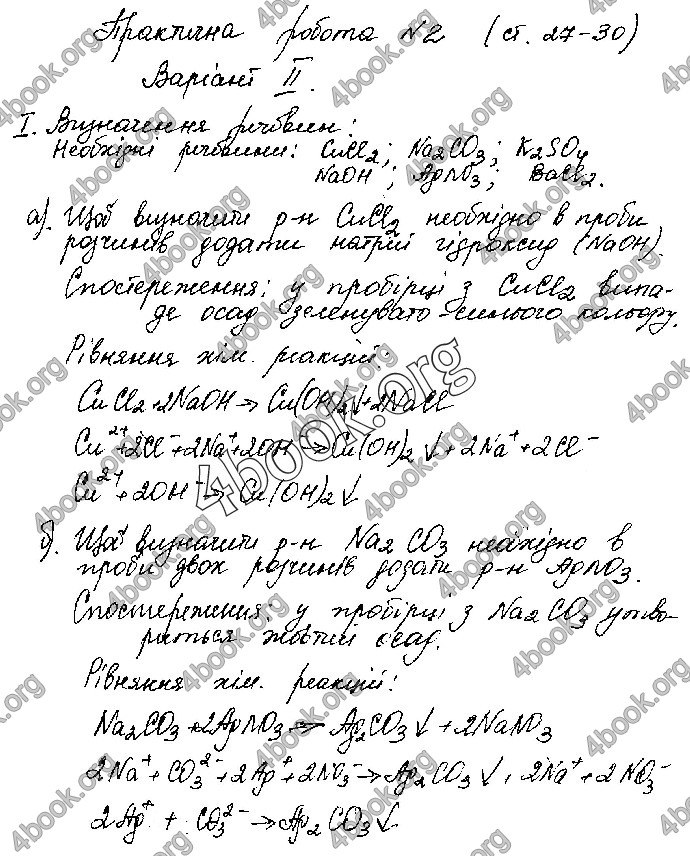 Практична робота №2 (ст. 27-30)
Варіант II.
I. Визначення речовин:
Необхідні речовини: CuCl2; Na2CO3; K2SO4
NaOH; AgNO3; BaCl2.
а). Щоб визначити р-н CuCl2 необхідно в проби
розчинів додати натрій гідроксид (NaOH).
Спостереження: у пробірці з CuCl2 випа-
де осад зеленувато-синього кольору.
Рівняння хім. реакцій:
CuCl2+2NaOH→Cu(OH)2↓+2NaCl
Cu²⁺+2Cl⁻+2Na⁺+2OH⁻→Cu(OH)2↓+2Na⁺+2Cl⁻
Cu²⁺+2OH⁻→Cu(OH)2↓
б). Щоб визначити р-н Na2CO3 необхідно в
проби двох розчинів додати р-н AgNO3.
Спостереження: у пробірці з Na2CO3 утво-
риться жовтий осад.
Рівняння хім. реакцій:
Na2CO3+2AgNO3→Ag2CO3↓+2NaNO3
2Na⁺+CO3²⁻+2Ag⁺+2NO3⁻→Ag2CO3↓+2Na⁺+2NO3⁻
2Ag⁺+CO3²⁻→Ag2CO3↓
4book.org